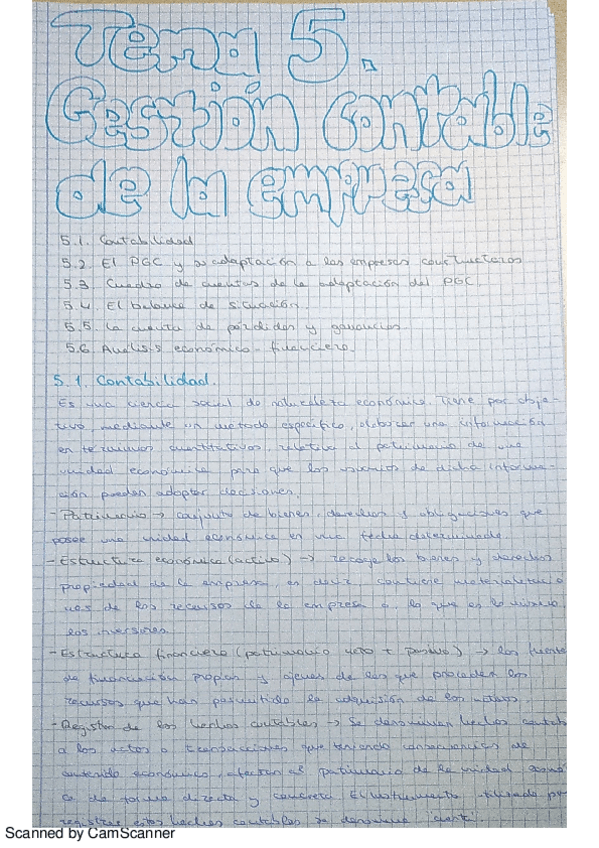 Tema 5.
Gestión contable
de la empresa
5.1. Contabilidad
5.2. El PGC y su adaptación a las empresas constructoras
5.3. Cuadro de cuentas de la adaptación del PGC.
5.4. El balance de situación.
5.5. La cuenta de pérdidas y ganancias.
5.6. Análisis económico-financiero.
5.1. Contabilidad.
Es una ciencia social de naturaleza económica. Tiene por obje-
tivo, mediante un método específico, elaborar una información
en términos cuantitativos, relativa al patrimonio de una
unidad económica para que los usuarios de dicha informa-
ción puedan adoptar decisiones.
- Patrimonio → conjunto de bienes, derechos y obligaciones que
posee una unidad económica en una fecha determinada
- Estructura económica (activo) → recoge los bienes y derechos
propiedad de la empresa, es decir, contiene materializacio
nes de los recursos de la empresa o, lo que es lo mismo,
las inversiones.
- Estructura financiera (patrimonio neto + pasivo) → las fuentes
de financiación propias y ajenas de las que proceden los
recursos que han permitido la adquisición de los activos.
- Registro de los hechos contables → Se denominan hechos contab
a los actos o transacciones que teniendo consecuencias de
contenido económico, afectan al patrimonio de la unidad económ
ca de forma directa y concreta. El instrumento utilizado pa
registrar estos hechos contables se denomina "cuenta".
Scanned by CamScanner